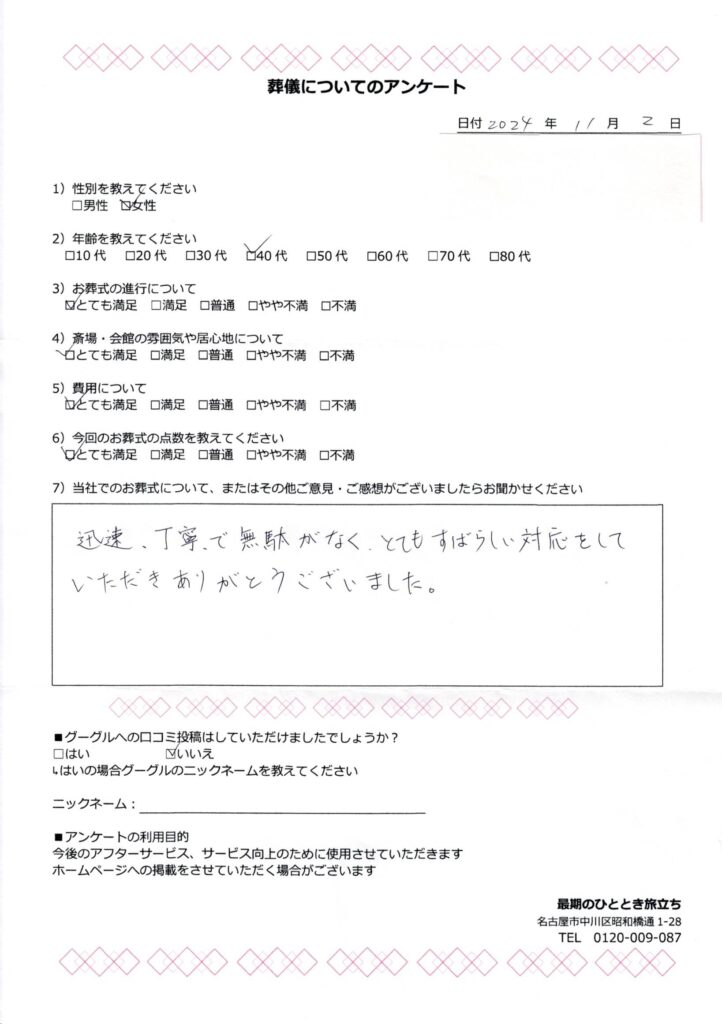 葬儀についてのアンケート
日付 2024 年 11 月 2 日
1）性別を教えてください
□男性 ☑女性
2）年齢を教えてください
□10代 □20代 □30代 ☑40代 □50代 □60代 □70代 □80代
3）お葬式の進行について
☑とても満足 □満足 □普通 □やや不満 □不満
4）斎場・会館の雰囲気や居心地について
☑とても満足 □満足 □普通 □やや不満 □不満
5）費用について
☑とても満足 □満足 □普通 □やや不満 □不満
6）今回のお葬式の点数を教えてください
☑とても満足 □満足 □普通 □やや不満 □不満
7）当社でのお葬式について、またはその他ご意見・ご感想がございましたらお聞かせください
迅速、丁寧、で無駄がなく、とてもすばらしい対応をして
いただきありがとうございました。
■グーグルへの口コミ投稿はしていただけましたでしょうか？
□はい ☑いいえ
↳はいの場合グーグルのニックネームを教えてください
ニックネーム：
■アンケートの利用目的
今後のアフターサービス、サービス向上のために使用させていただきます
ホームページへの掲載をさせていただく場合がございます
最期のひととき旅立ち
名古屋市中川区昭和橋通1-28
TEL 0120-009-087